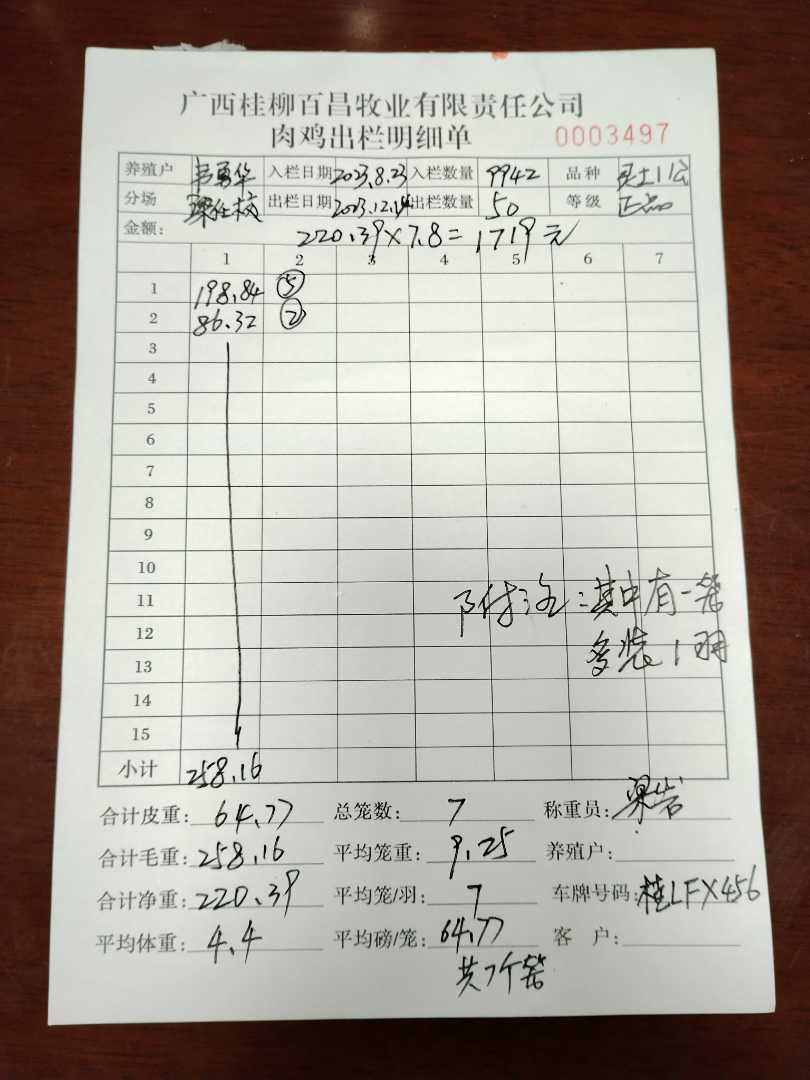 广西桂柳百昌牧业有限责任公司
肉鸡出栏明细单 0003497
养殖户 韦勇华 入栏日期 2023.8.23 入栏数量 9942 品种 土11公
分场 出栏日期 2023.12.14 出栏数量 50 等级 正品
金额: 220.39×7.8=1719元
1 2 3 4 5 6 7
1 198.84 ⑤
2 86.32 ②
3
4
5
6
7
8
9
10
11 附注:其中有一笼
12 多装1羽
13
14
15
小计 258.16
合计皮重: 64.77 总笼数: 7 称重员: 梁岩
合计毛重: 258.16 平均笼重: 9.25 养殖户:
合计净重: 220.39 平均笼/羽: 7 车牌号码: 桂LFX456
平均体重: 4.4 平均磅/笼: 64.77 客 户:
共7个笼